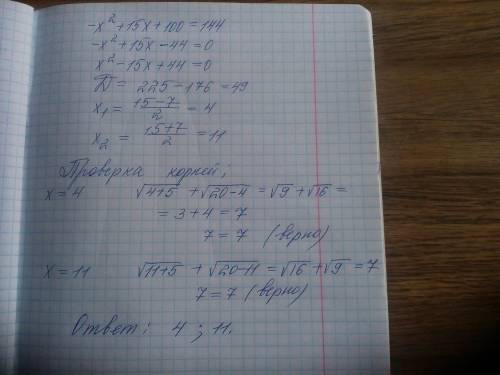 -x²+15x+100=144
-x²+15x-44=0
x²-15x+44=0
D = 225-176=49
x₁ = (15-7)/2 = 4
x₂ = (15+7)/2 = 11
Проверка корней;
x=4 √(4+5) + √(20-4) = √9 + √16 =
= 3+4=7
7=7 (верно)
x=11 √(11+5) + √(20-11) = √16 + √9 = 7
7=7 (верно)
Ответ: 4 ; 11.